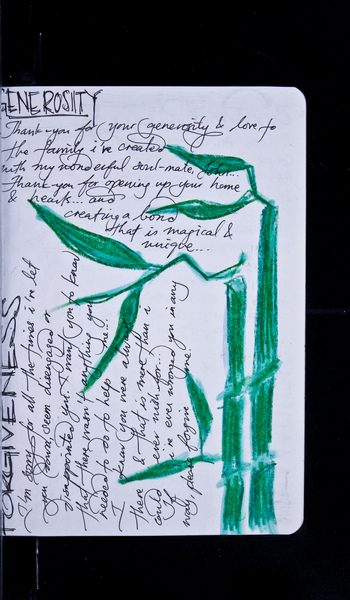 GENEROSITY
Thank-you for your generosity & love to
the family i've created
with my wonderful soul-mate, John...
Thank you for opening up your home
& heart... and
creating a bond
that is magical &
unique...
FORGIVENESS
I'm sorry for all the times i've let
you down, seem disengaged or
disappointed you. I want you to know
that there wasn't anything you
needed to do to help me...
I know you were always
there & that is more than i
could ever wish for...
If i've ever wronged you in any
way, please forgive me.